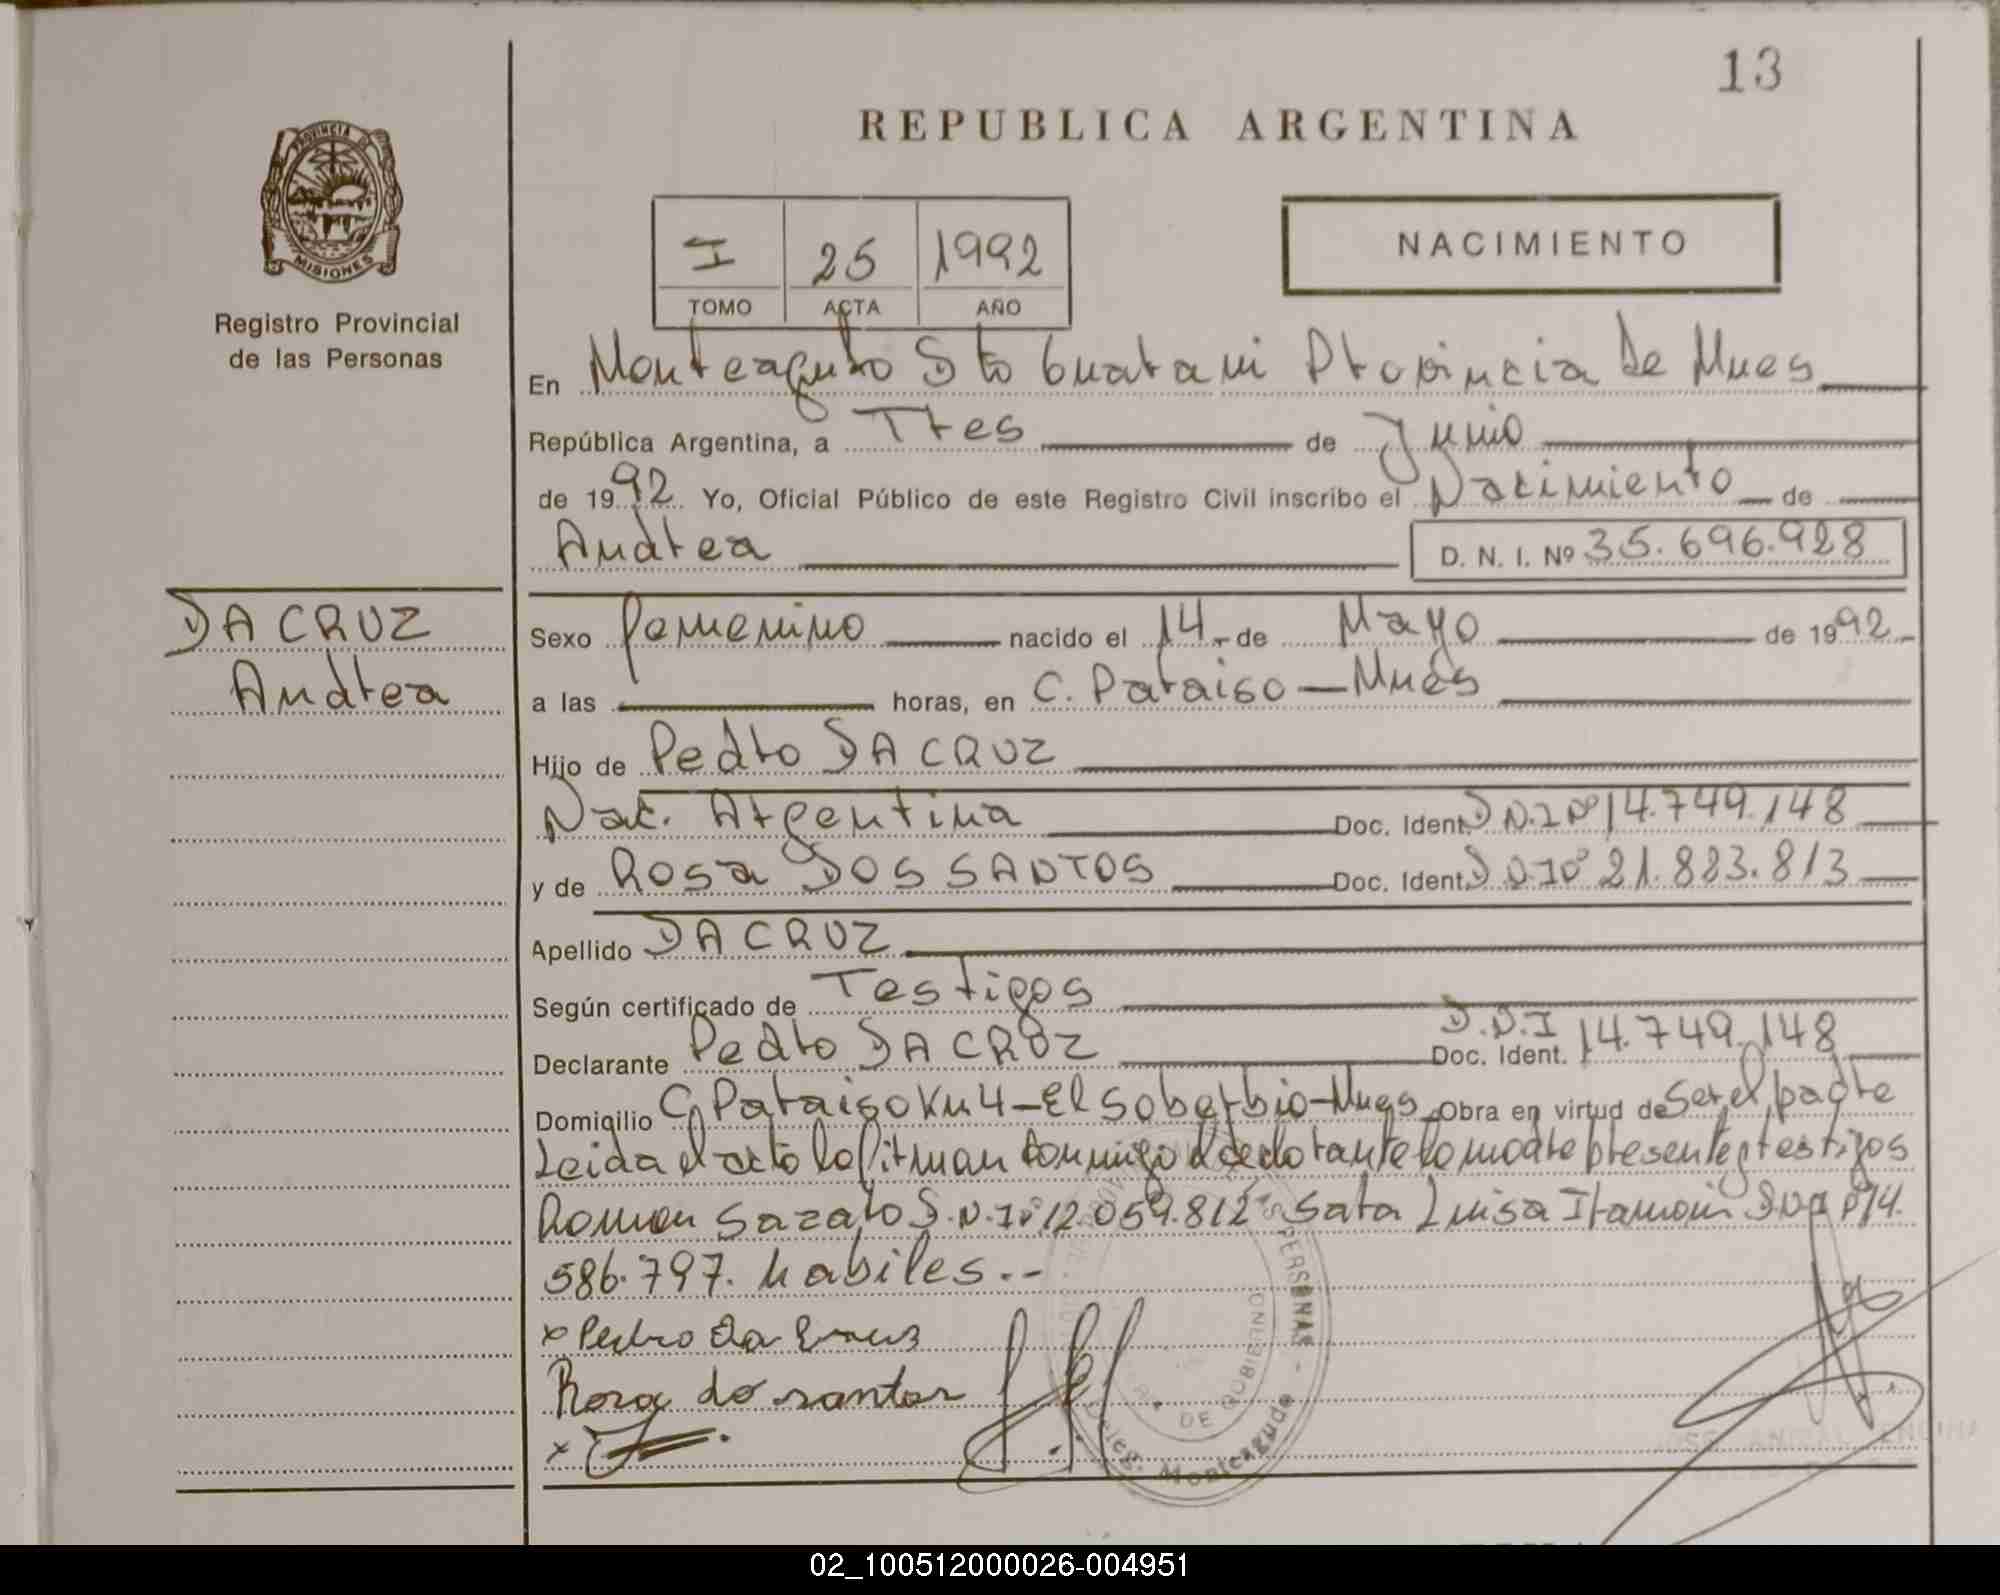 13
REPUBLICA ARGENTINA
PROVINCIA DE
MISIONES
Registro Provincial
de las Personas
I 25 1992
TOMO ACTA AÑO
NACIMIENTO
En Monteagudo Dto Guarani Provincia De Mnes
República Argentina, a Tres de Junio
de 1992 Yo, Oficial Público de este Registro Civil inscribo el Nacimiento de
Andrea D. N. I. Nº 35.696.928
DA CRUZ
Andrea
Sexo femenino nacido el 14 de Mayo de 1992
a las horas, en C. Paraiso - Mnes
Hijo de Pedro DA CRUZ
Nac. Argentina Doc. Ident. D.N.I Nº 14.749.148
y de Rosa DOS SANTOS Doc. Ident. D.N.I Nº 21.823.813
Apellido DA CRUZ
Según certificado de Testigos
Declarante Pedro DA CRUZ Doc. Ident. D.N.I 14.749.148
Domicilio C. Paraiso Km 4 - El Soberbio - Mnes Obra en virtud de Ser el padre
Leida el acta la firman conmigo el declarante la madre presente y testigos
Roman Sazalo D.N.I Nº 12.059.812 Sara Luisa D.N.I Nº 14.
586.797. habiles.--
x Pedro Da Cruz
Rosa do santos
x
PERSONAS
DE GOBIERNO
Deleg. Monteagudo
02_100512000026-004951